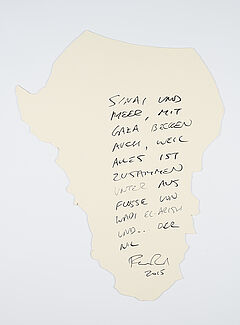 SINAI UND
MEER, MIT
GAZA BECKEN
AUCH, WEIL
ALLES IST
ZUSAMMEN
UNTER AUS
FLÜSSE VON
WADI EL-ARISH
UND.. DER
NIL
2015